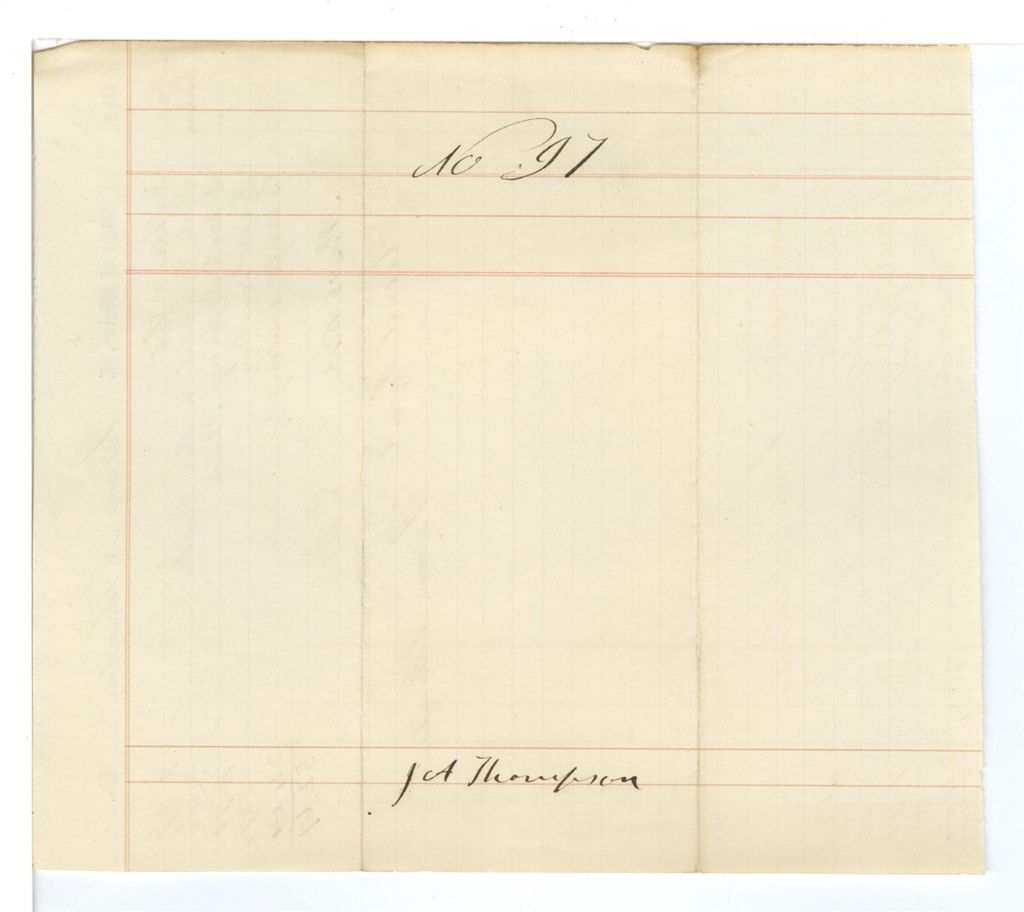 No 97
J A Thompson